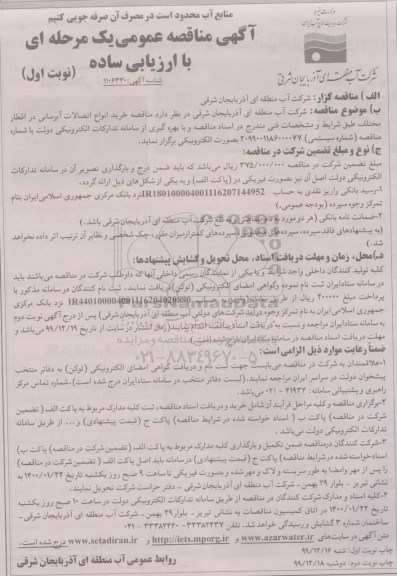 منابع آب محدود است در مصرف آن صرفه جویی کنیم
آگهی مناقصه عمومی یک مرحله ای
با ارزیابی ساده
(نوبت اول)
شناسه آگهی: ۱۱۰۶۳۳۰
شرکت آب منطقه‌ای آذربایجان شرقی
الف ) مناقصه گزار: شرکت آب منطقه ای آذربایجان شرقی
ب) موضوع مناقصه: شرکت آب منطقه ای آذربایجان شرقی در نظر دارد مناقصه خرید انواع اتصالات آبرسانی در اقطار
مختلف طبق شرایط و مشخصات فنی مندرج در اسناد مناقصه و با بهره گیری از سامانه تدارکات الکترونیکی دولت با شماره
مناقصه (شماره سیستمی) ۲۰۹۹۰۰۱۱۸۶۰۰۰۰۷۷ بصورت الکترونیکی برگزار نماید.
ج) نوع و مبلغ تضمین شرکت در مناقصه:
مبلغ تضمین شرکت در مناقصه ۳۷۵/۰۰۰/۰۰۰ ریال می‌باشد که باید ضمن درج و بارگذاری تصویر آن در سامانه تدارکات
الکترونیکی دولت اصل آن نیز بصورت فیزیکی در (پاکت الف) و به یکی از شکل‌های ذیل ارائه گردد.
۱-رسید بانکی واریز نقدی به حساب IR180100004001116207144952 نزد بانک مرکزی جمهوری اسلامی ایران بنام
تمرکز وجوه سپرده (بودجه عمومی.)
۲-ضمانت نامه بانکی (هر دو مورد شرکت آب منطقه ای آذربایجان شرقی باشد.)
(به پیشنهادهای فاقد سپرده، سپرده‌های مخدوش، سپرده‌های کمتر از میزان مقرر، چک شخصی و نظایر آن ترتیب اثر داده نخواهد
شد.)
د) محل، زمان و مهلت دریافت اسناد، محل تحویل و گشایش پیشنهادها:
کلیه تولید کنندگان داخلی واجد شرایط و یا یکی از نمایندگان رسمی داخلی آنها که داوطلب شرکت در مناقصه می‌باشند باید
در سامانه ستاد ایران ثبت نام نموده و گواهی امضای الکترونیکی (توکن) دریافت نمایند. ثبت نام کنندگان در سامانه مذکور با
پرداخت مبلغ ۳۰۰۰۰۰ ریال از طریق IR440100004001116204020890 نزد بانک مرکزی
جمهوری اسلامی ایران به نام تمرکز وجوه درآمد شرکت‌های دولتی (آب منطقه ای آذربایجان شرقی) پس از درج آگهی نوبت دوم
به سامانه ستاد ایران مراجعه و نسبت به دریافت اسناد مناقصه اقدام نمایند. (زمان انتشار در سایت از تاریخ ۹۹/۱۲/۱۹ می‌باشد و
مهلت دریافت اسناد مناقصه در سامانه
۰۲۱-۸۸۳۴۹۶۷۰-۵
ضمناً رعایت موارد ذیل الزامی است:
۱-علاقمندان به شرکت در مناقصه می‌بایست جهت ثبت نام و دریافت گواهی امضای الکترونیکی (توکن) به دفاتر منتخب
پیشخوان دولت در سراسر ایران مراجعه نمایند. (لیست دفاتر منتخب در سامانه ستاد ایران درج شده است). شماره تماس مرکز
راهبری و پشتیبانی سامانه: ۴۱۹۳۴ - ۰۲۱ می‌باشد.
۲-برگزاری مناقصه و کلیه مراحل فرآیند آن شامل خرید و دریافت اسناد مناقصه، ثبت کلیه مدارک مربوط به پاکت الف (تضمین
شرکت در مناقصه) پاکت ب ( اسناد خواسته شده در شرایط مناقصه) پاکت ج (قیمت پیشنهادی) و... از طریق سامانه
تدارکات الکترونیکی دولت می باشد.
۳-شرکت کنندگان در مناقصه ضمن تکمیل و بارگذاری کلیه مدارک مربوط به پاکت الف (تضمین شرکت در مناقصه) پاکت ب)
اسناد خواسته شده در شرایط مناقصه) پاکت ج (قیمت پیشنهادی) در سامانه باید اصل پاکت الف (تضمین شرکت در مناقصه)
را پس از مهر و امضا به طور سربسته و لاک و مهر شده و بصورت فیزیکی تا ساعت ۹ صبح روز یکشنبه تاریخ ۱۴۰۰/۰۱/۲۲ به
نشانی تبریز - بلوار ۲۹ بهمن - شرکت آب منطقه ای آذربایجان شرقی - دفتر حراست شرکت تحویل نمایند.
۴-کلیه اسناد و مدارک شرکت کنندگان در مناقصه از طریق سامانه تدارکات الکترونیکی دولت در ساعت ۱۰ صبح روز یکشنبه
۱۴۰۰/۰۱/۲۲ در اتاق کمیسیون مناقصات به نشانی تبریز - بلوار ۲۹ بهمن - شرکت آب منطقه ای آذربایجان شرقی -
ساختمان شماره ۳ گشایش و رسیدگی خواهد شد. تلفن ۳۳۳۸۲۲۳۷ - ۳۳۳۸۲۴۳۰ - ۰۴۱
متن آگهی در سایت‌های www.azarwater.ir و http://iets.mporg.ir و www.setadiran.ir درج شده است.
چاپ نوبت اول: شنبه ۹۹/۱۲/۱۶
چاپ نوبت دوم: دوشنبه ۹۹/۱۲/۱۸
روابط عمومی آب منطقه ای آذربایجان شرقی